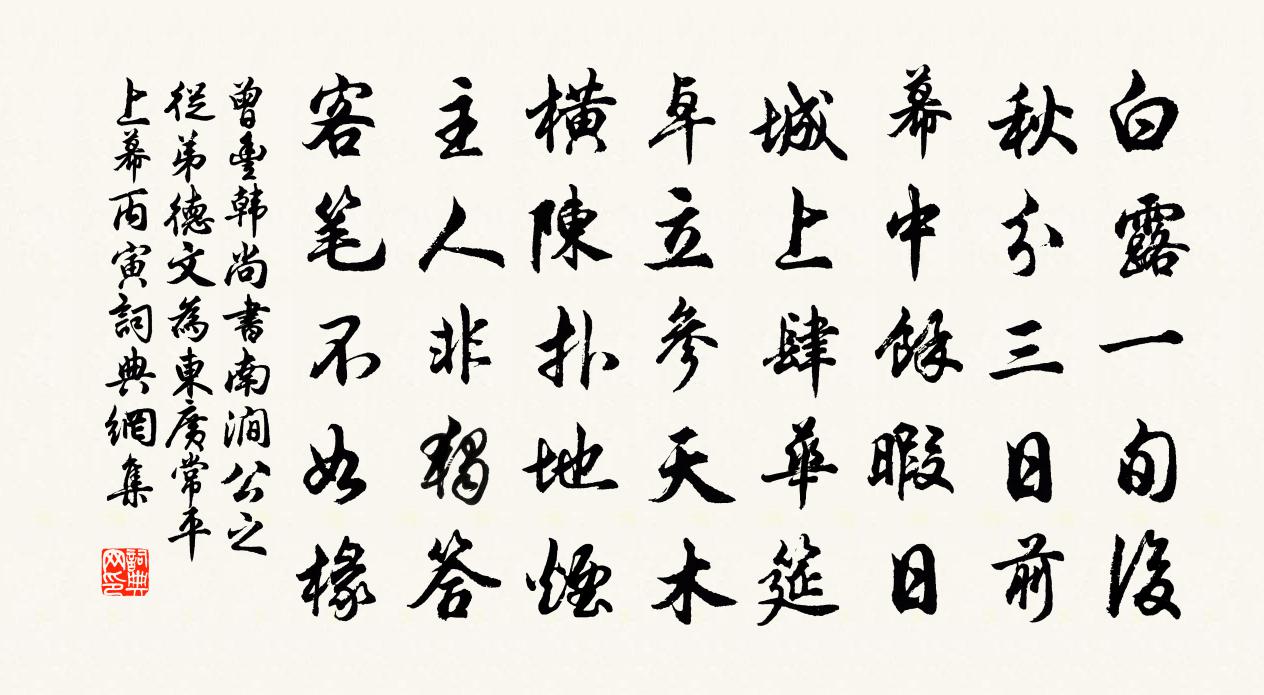 白露一旬後
秋分三日前
幕中餘暇日
城上肆華筵
卓立參天木
橫陳扑地煙
主人非獨答
客笔不如椽
曾豐韩尚書南澗公之
從弟德文為東廣常平
上幕丙寅詞典網集
詞典
网印